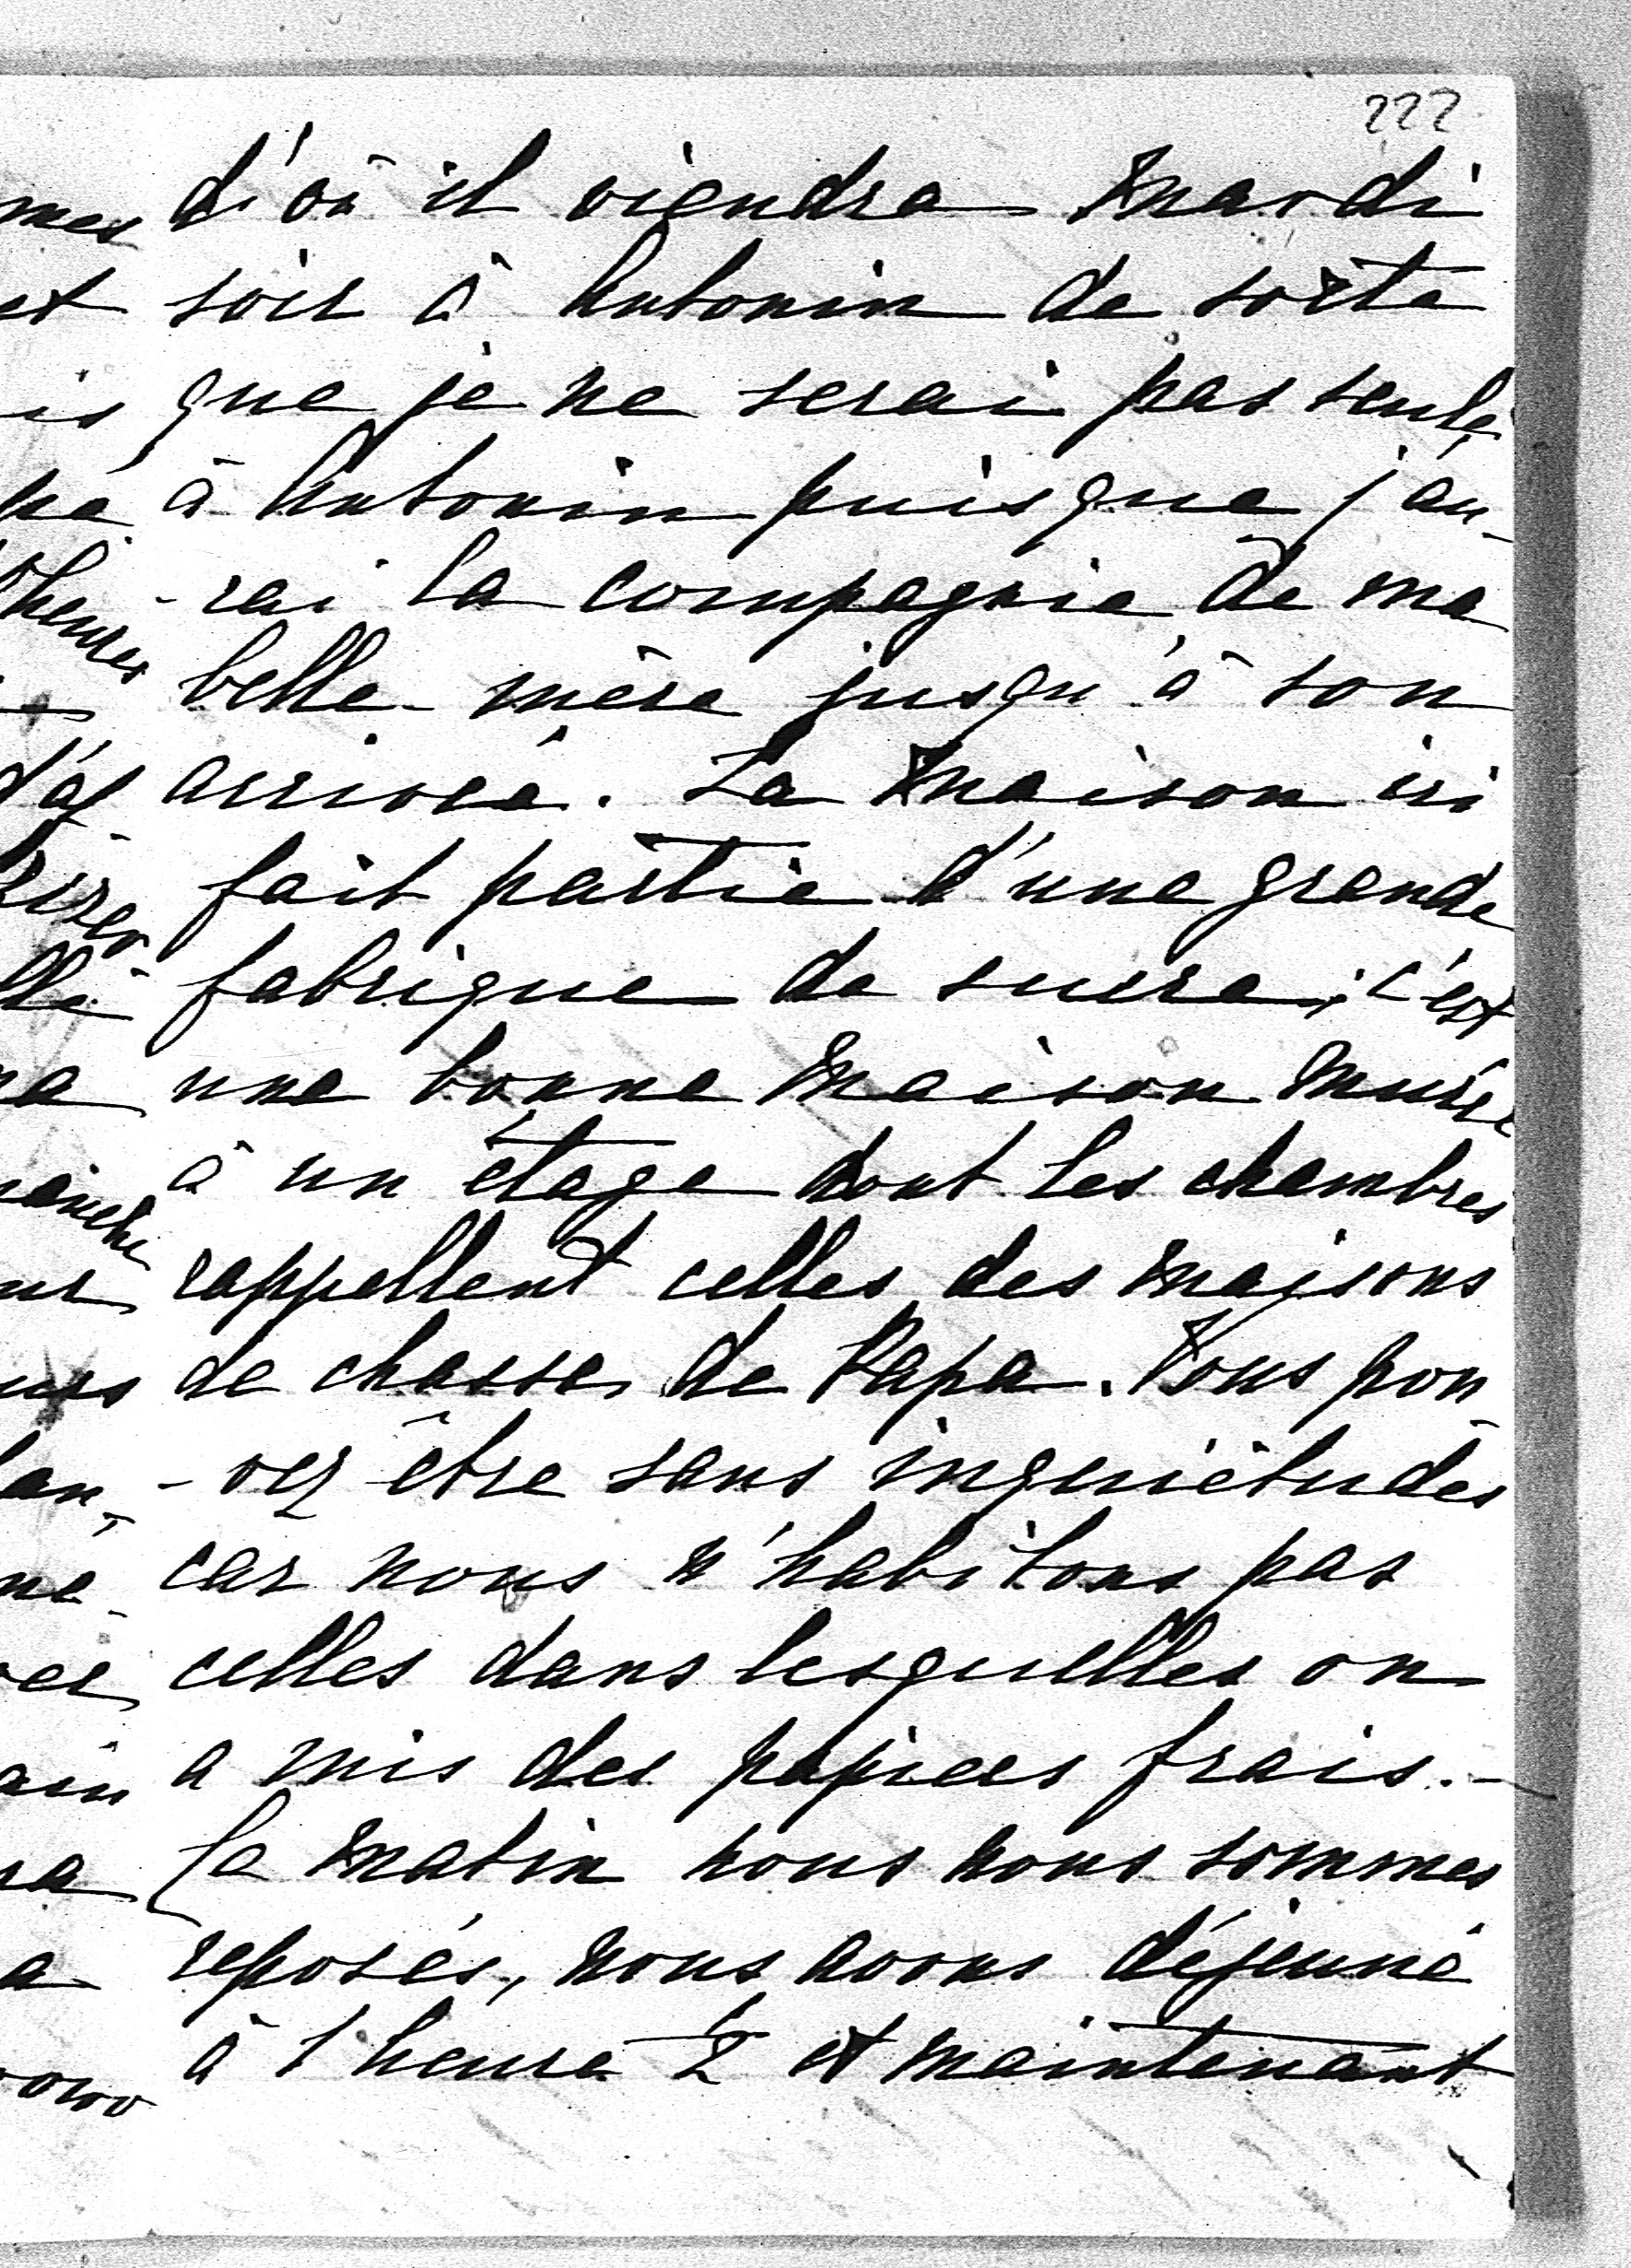 222
d'où il viendra Mardi
soir à Antonin de sorte
que je ne serai pas seule
à Antonin puisque j'au-
-rai la compagnie de ma
belle-mère jusqu'à son
arrivée. La Maison ici
fait partie d'une grande
fabrique de sucre; c'est
une bonne Maison murée
à un étage dont les chambres
rappellent celles des Maisons
de chasse de Papa. Vous pou
-vez être sans inquiétudes
car nous n'habitons pas
celles dans lesquelles on
a mis des papiers frais.-
Le Matin nous nous sommes
reposés, nous avons déjeuné
à 1 heure ½ et maintenant